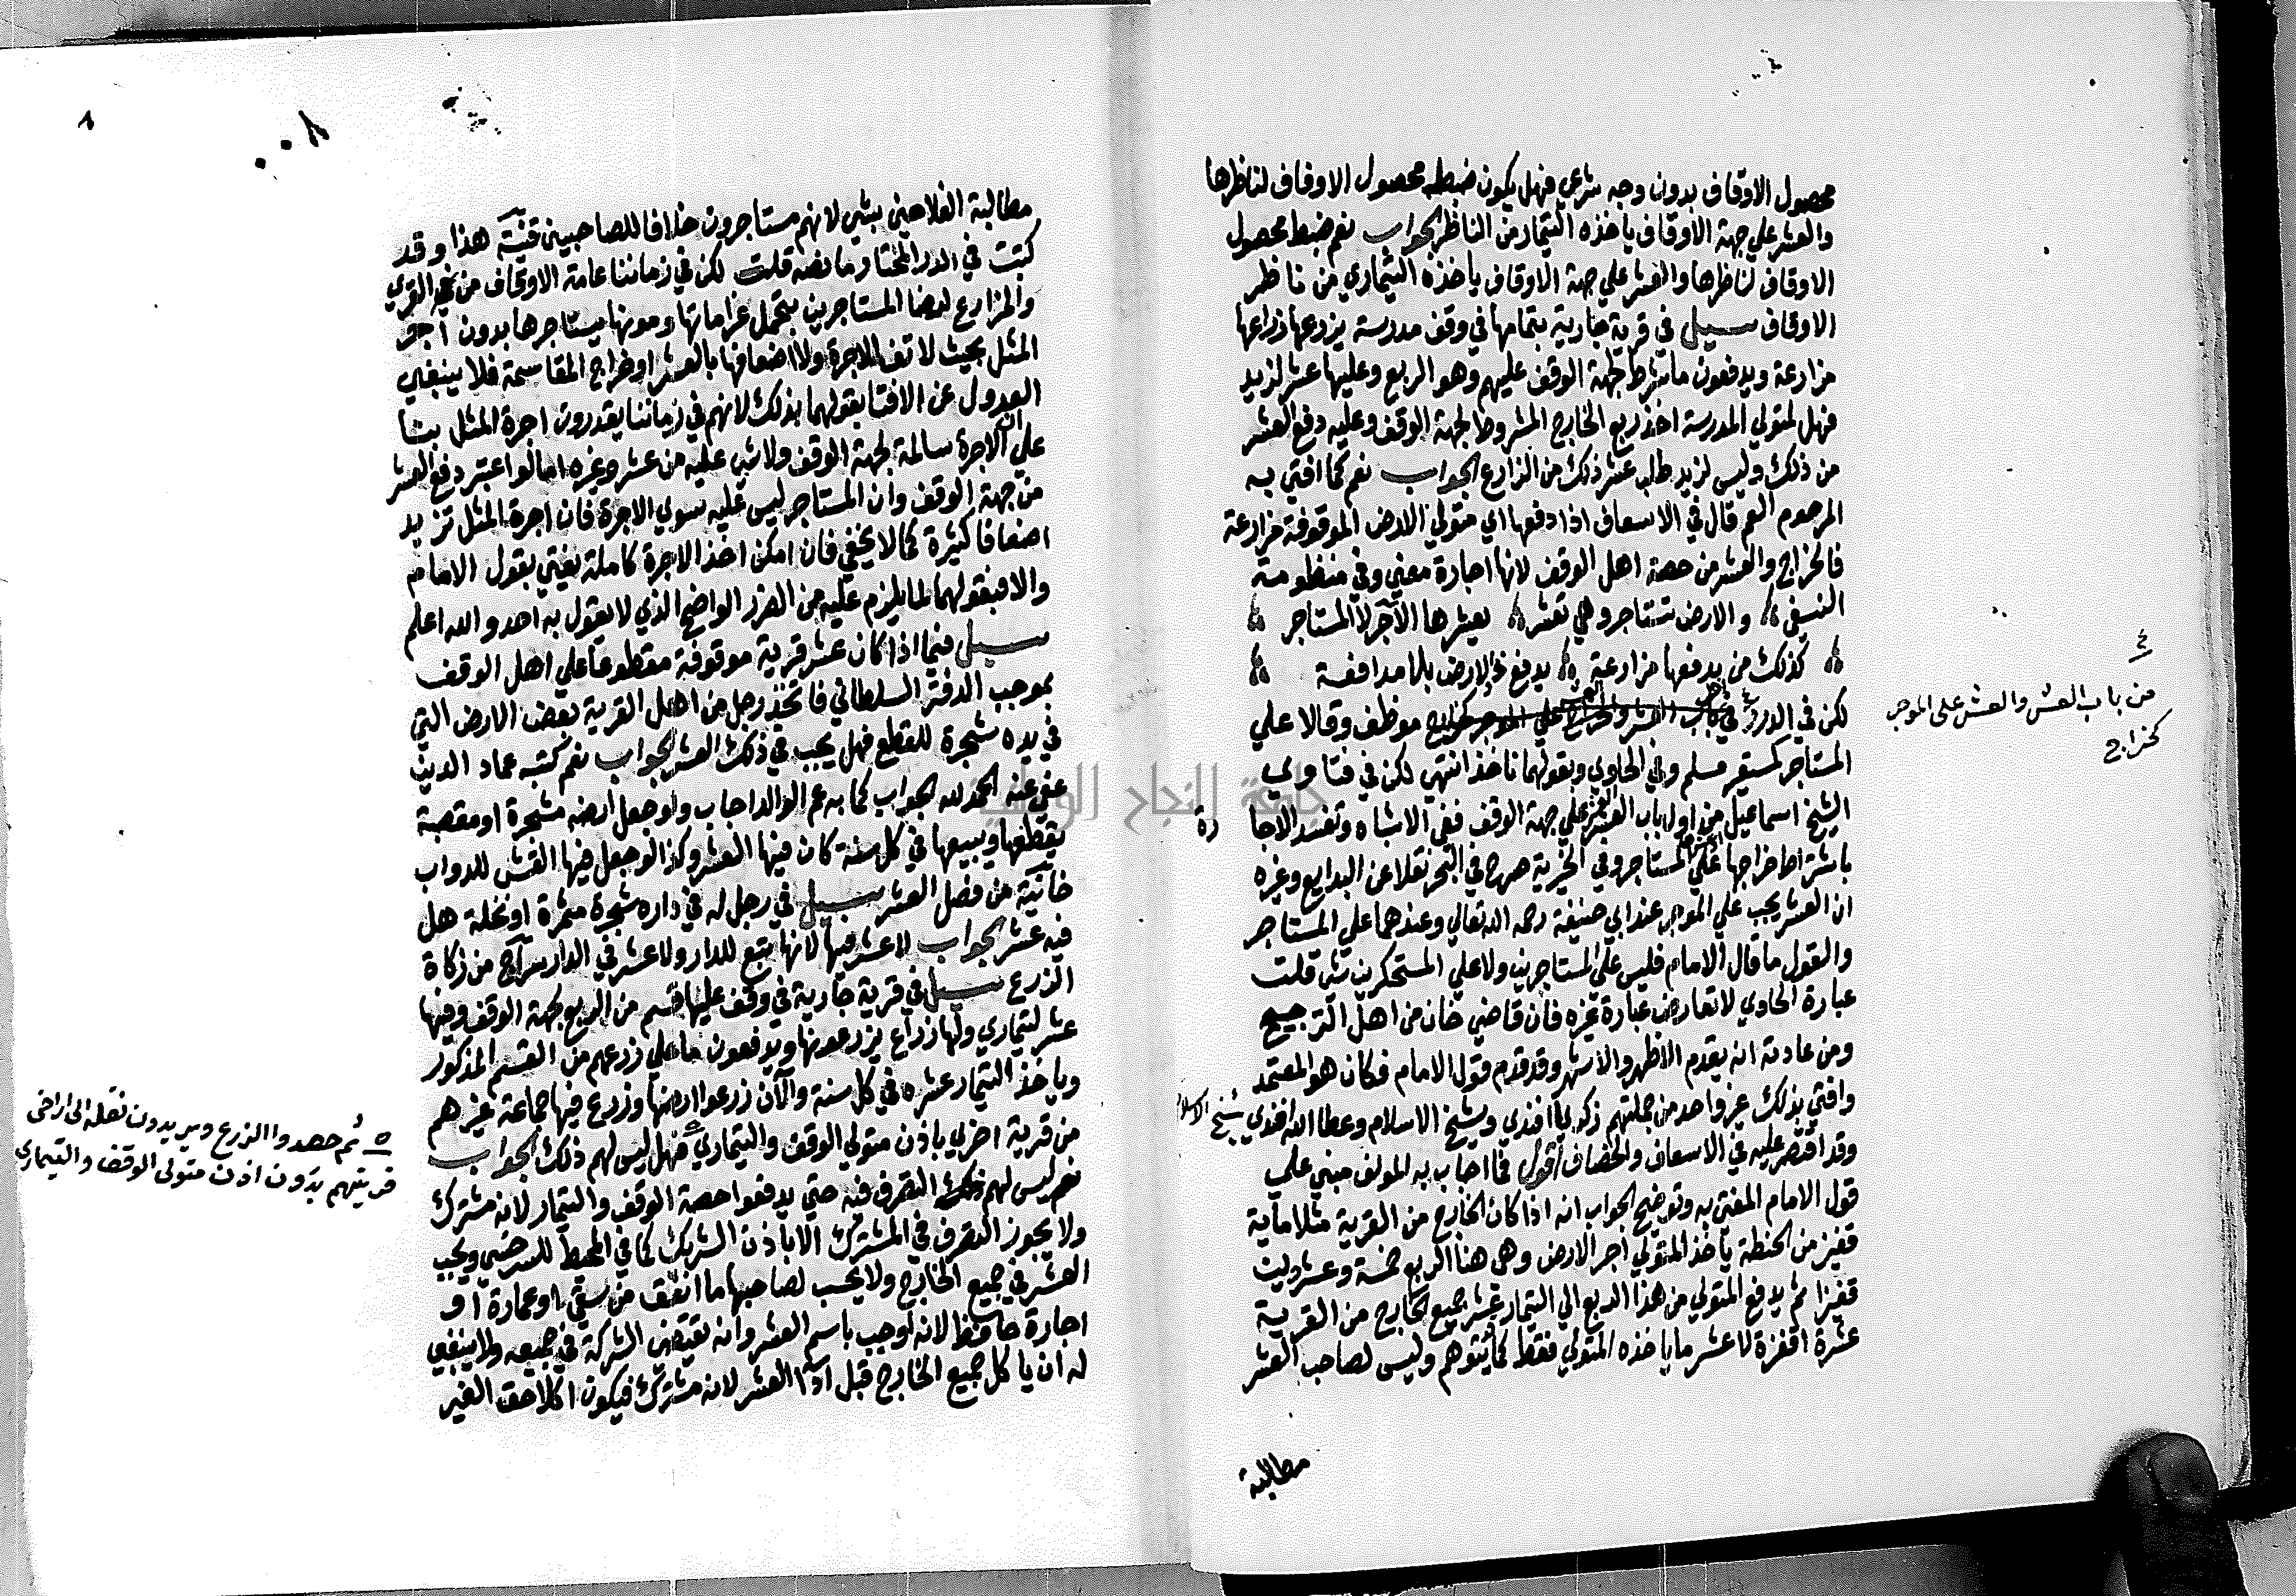 محصول الاوقاف بدون وجه شرعي فهل يكون ضبط محصول الاوقاف لناظرها
والعشر علي جهة الاوقاف ياخذه التيمار من الناظر الجواب نعم ضبط محصول
الاوقاف لناظرها والعشر علي جهة الاوقاف ياخذه التيماري من ناظر
الاوقاف سيل في قرية جارية بتمامها في وقف مدرسة يزرعها زراعها
مزارعة ويدفعون ما شرط لجهة الوقف عليهم وهو الربع وعليها عشر لزيد
فهل لمتولي المدرسة اخذ ربع الخارج المشروط لجهة الوقف وعليه دفع العشر
من ذلك وليس لزيد طلب عشر ذلك من الزارع الجواب نعم كما افتي به
المرحوم العم قال في الاسعاف اذا دفعها اي متولي الارض الموقوفة مزارعة
فالخراج والعشر من حصة اهل الوقف لانها اجارة معني وفي منظومة
النسفي والارض تستاجر وهي تعشر بعشرها الآجر لا المستاجر
كذلك من يدفعها مزارعة يدفع الارض بلا مدافعة
لكن في الدرر في موظف وقالا علي
المستاجر كمستعير مسلم وفي الحاوي وبقولهما ناخذ انتهي لكن في فتاوي
الشيخ اسماعيل من اول باب العشر علي جهة الوقف ففي الاشباه وتفسد الاجا رة
باشتراط خراجها علي المستاجر وفي الخيرية صرح في البحر نقلا عن البدايع وغيره
ان العشر يجب علي الموجر عند ابي حنيفة رحمه الله تعالي وعندهما علي المستاجر
والقول ما قال الامام فليس علي المستاجرين ولا علي المستحكرين شي قلت
عبارة الحاوي لا تعارض عبارة غيره فان قاضي خان من اهل الترجيح
ومن عادته انه يقدم الاظهر والاشهر وقد قدم قول الامام فكان هو المعتمد
وافتي بذلك غير واحد من جملتهم زكريا افندي وشيخ الاسلام وعطا الله افندي شيخ الاسلام
وقد اقتصر عليه في الاسعاف والخصاف اقول فما اجاب به المولف مبني علي
قول الامام المفتي به وتوضيح الجواب انه اذا كان الخارج من القرية مثلا ماية
قفيز من الحنطة ياخذ المتولي اجر الارض وهي هنا الربع خمسة وعشرين
قفيزا ثم يدفع المتولي من هذا الربع الي التيمار عشر جميع الخارج من القرية
عشرة اقفزة لا عشر ما ياخذه المتولي فقط كما يتوهم وليس لصاحب العشر
مطالبة
٤
من باب العشر والعشر على الموجر
كخراج
٨
٠٠٨
مطالبة الفلاحين بشي لانهم مستاجرون خلافا للصاحبين قنية هذا وقد
كتبت في الدر المختار ما نصه قلت لكن في زماننا عامة الاوقاف من القري
والمزارع لرضا المستاجرين بتحمل غراماتها ومونها يستاجرها بدون اجر
المثل بحيث لا تفي الاجرة ولا اضعافها بالعشر او خراج المقاسمة فلا ينبغي
العدول عن الافتا بقولهما بذلك لانهم في زماننا يقدرون اجرة المثل بنا
علي ان الاجرة سالمة لجهة الوقف ولا شي عليه من عشر وغيره اما لو اعتبر دفع العشر
من جهة الوقف وان المستاجر ليس عليه سوي الاجرة فان اجرة المثل تزيد
اضعافا كثيرة كما لا يخفي فان امكن اخذ الاجرة كاملة يفتي بقول الامام
والا فبقولهما لما يلزم عليه من الضرر الواضح الذي لا يقول به احد والله اعلم
سيل فيما اذا كان عشر قرية موقوفة مقطوعا علي اهل الوقف
بموجب الدفتر السلطاني فاتخذ رجل من اهل القرية بعض الارض التي
في يده مشجرة للقطع فهل يجب في ذلك العشر الجواب نعم كتبه عماد الدين
عفي عنه الحمد لله الجواب كما به عم الوالد اجاب ولو جعل ارضه مشجرة او مقصبة
يقطعها ويبيعها في كل سنة كان فيها العشر وكذا لو جعل فيها القش للدواب
خانية من فصل العشر سيل في رجل له في داره شجرة مثمرة او نخلة هل
فيه عشر الجواب لا عشر فيها لانها تبع للدار ولا عشر في الدار سراج من زكاة
الزرع سيل في قرية جارية في وقف عليها قسم من الربع لجهة الوقف وفيها
عشر لتيماري ولها زراع يزرعونها ويدفعون ما علي زرعهم من القسم المذكور
وياخذ التيمار عشره في كل سنة والآن زرعوا ارضها وزرع فيها جماعة غيرهم
من قرية اخري باذن متولي الوقف والتيماري فهل ليس لهم ذلك الجواب
نعم ليس لهم ذلك التصرف فيه حتي يدفعوا حصة الوقف والتيمار لانه مشترك
ولا يجوز التصرف في المشترك الا باذن الشريك كما في المحيط للسرخسي ويجب
العشر في جميع الخارج ولا يحسب لصاحبها ما انفق من سقي او عمارة او
اجارة حافظ لانه اوجب باسم العشر وانه يقتضي الشركة في جميعه ولا ينبغي
له ان ياكل جميع الخارج قبل ادآ العشر لانه مشترك فيكون اكلا حق الغير
٥ ثم حصدوا الزرع ويريدون نقله الى اراضى
قريتهم بدون اذن متولى الوقف والتيمارى
جامعة النجاح الوطنية